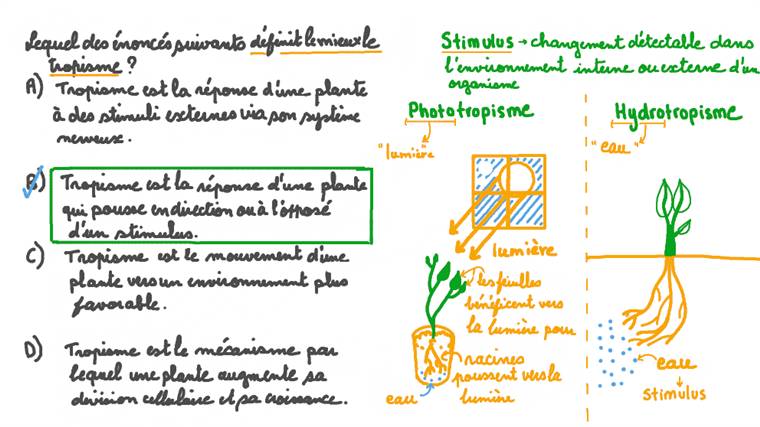 Lequel des énoncés suivants définit le mieux le
tropisme ?
A) Tropisme est la réponse d'une plante
à des stimuli externes via son système
nerveux.
B) Tropisme est la réponse d'une plante
qui pousse en direction ou à l'opposé
d'un stimulus.
C) Tropisme est le mouvement d'une
plante vers un environnement plus
favorable.
D) Tropisme est le mécanisme par
lequel une plante augmente sa
division cellulaire et sa croissance.
Stimulus → changement détectable dans
l'environnement interne ou externe d'un
organisme
Phototropisme
"lumière"
lumière
les feuilles
bénéficent vers
la lumière pour
racines
poussent vers la
lumière
eau
Hydrotropisme
"eau"
eau
Stimulus